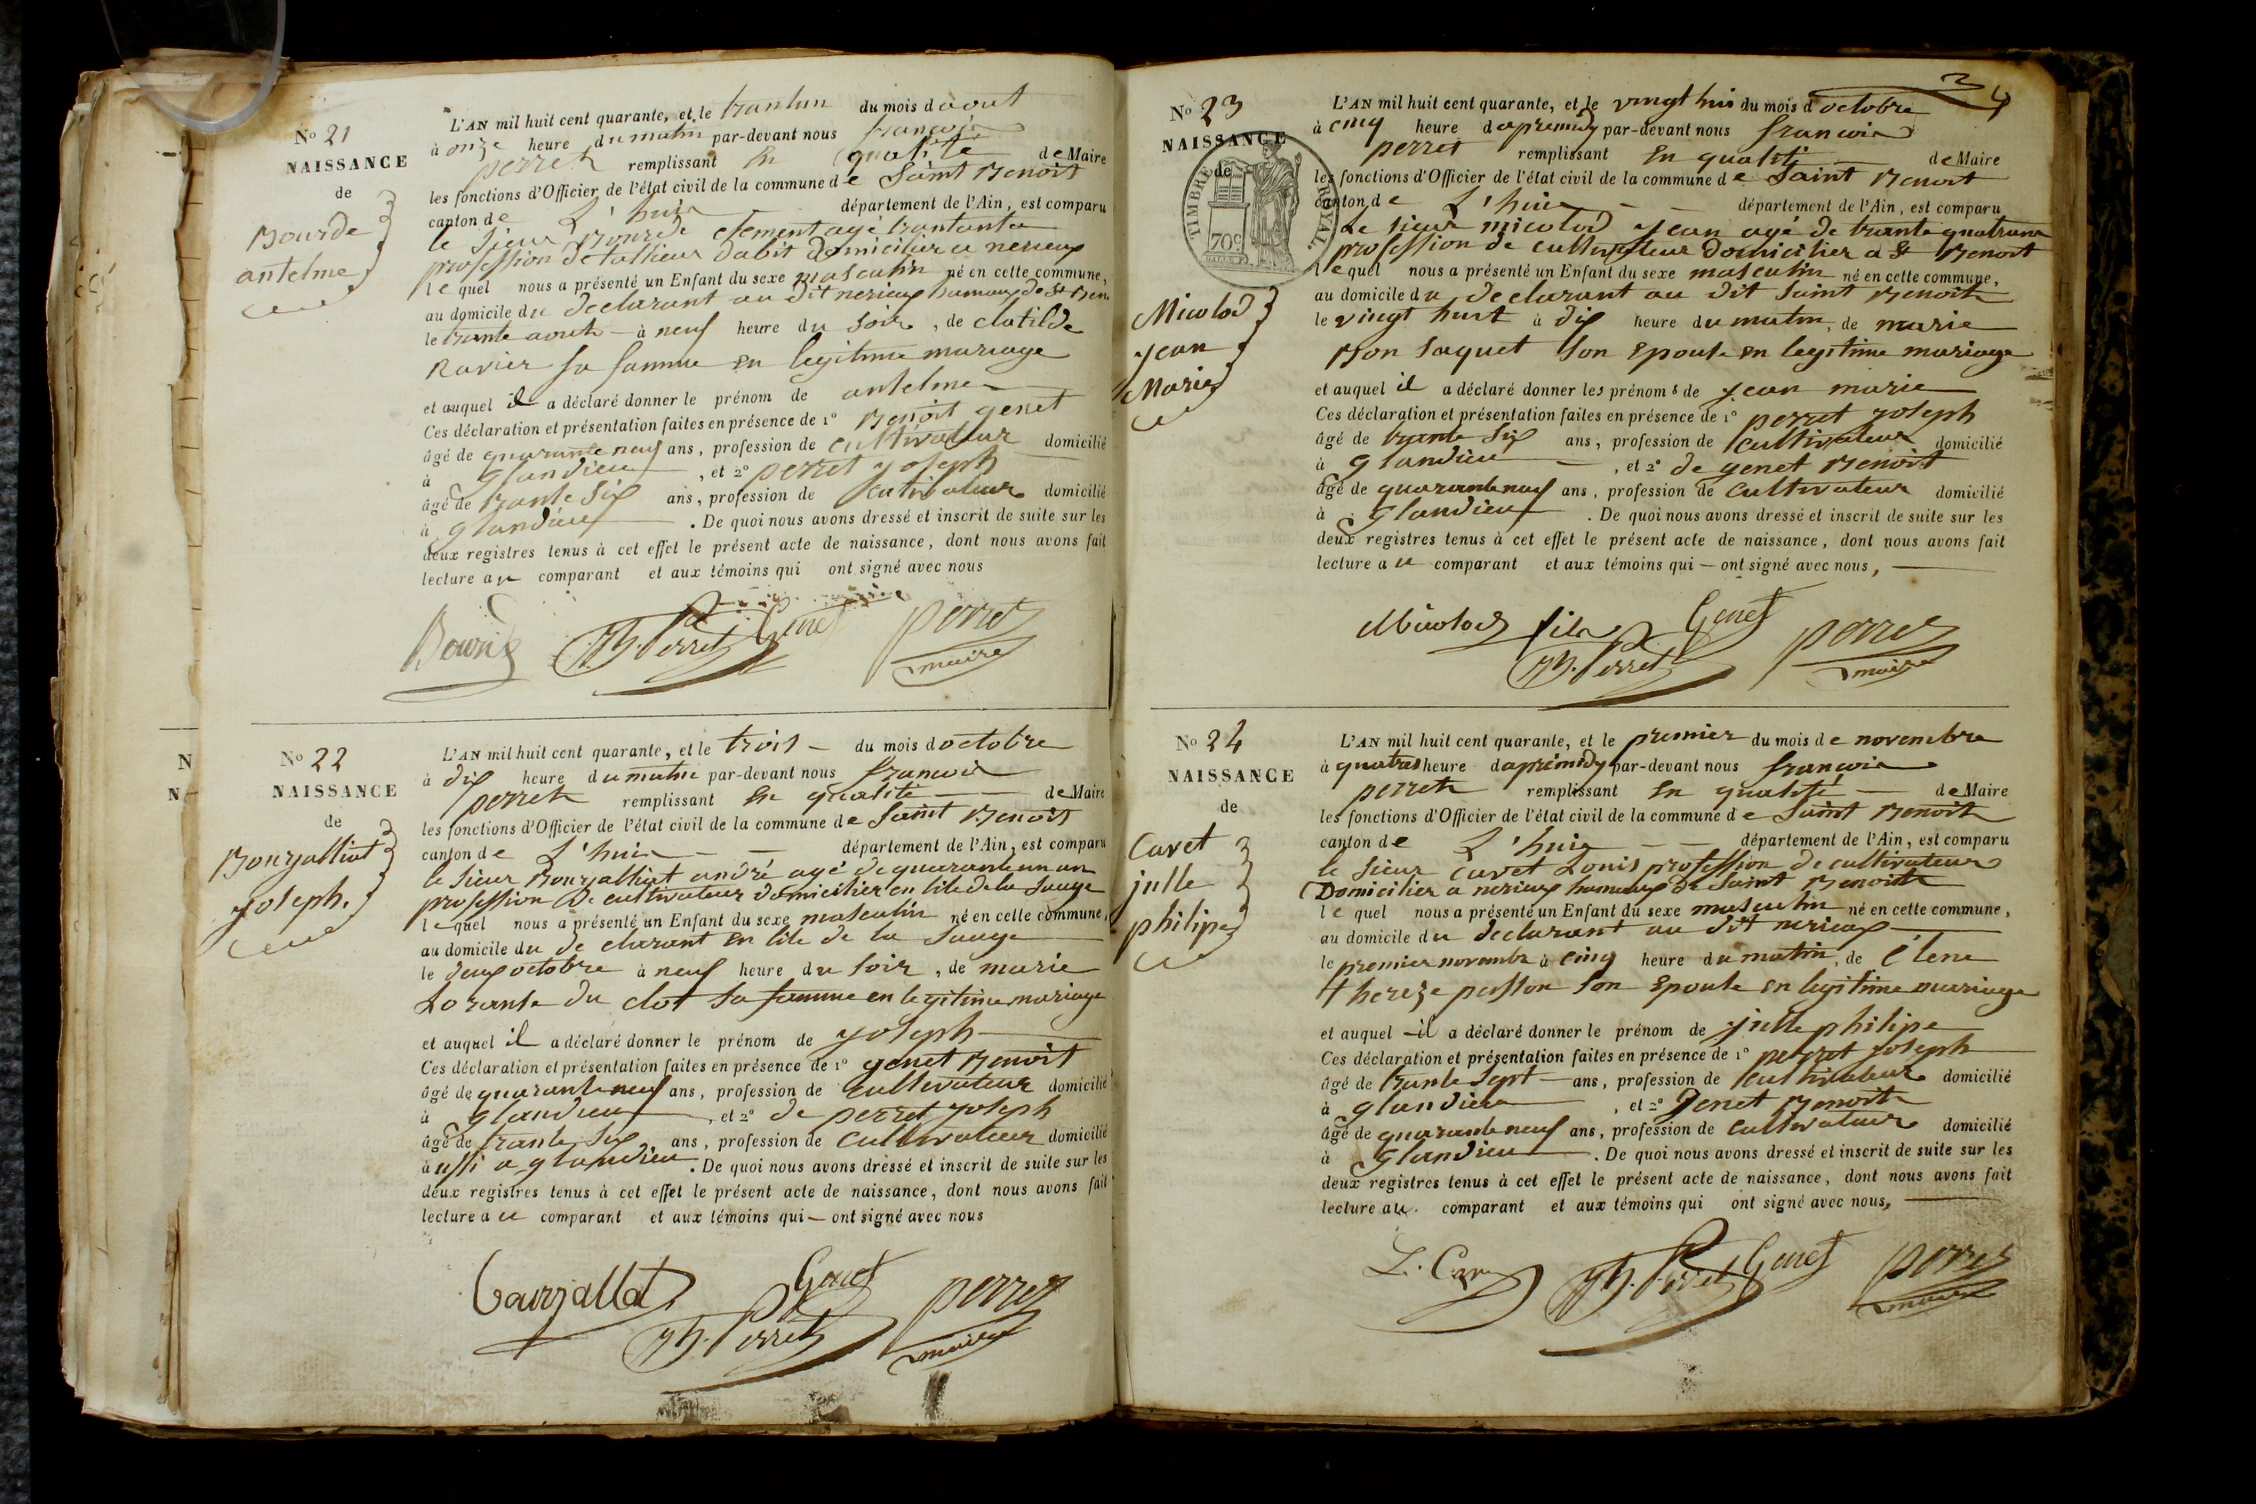 No 21
NAISSANCE
de
Bourde
antelme
L'AN mil huit cent quarante, et le trantun du mois d aout
à onze heure du matin par-devant nous francois
perret remplissant En qualité de Maire
les fonctions d'Officier de l'état civil de la commune de Saint Benoit
canton de L'huis département de l'Ain, est comparu
le Sieur Bourde clement agé trantante
profession de tallieur dabit domicilier a nerieux
lequel nous a présenté un Enfant du sexe masculin né en cette commune,
au domicile du declarant au dit nerieux hamaux de St Ben
le trante aout à neuf heure du Soir, de clotilde
Ravier sa famme en legitime mariage
et auquel il a déclaré donner le prénom de antelme
Ces déclaration et présentation faites en présence de 1º Benoit genet
âgé de quarante neuf ans, profession de cultivateur domicilié
à glandieu, et 2º perret joseph
âgé de trante six ans, profession de cultivateur domicilié
à glandieu. De quoi nous avons dressé et inscrit de suite sur les
deux registres tenus à cet effet le présent acte de naissance, dont nous avons fait
lecture au comparant et aux témoins qui ont signé avec nous
Bourde Jh. Perret Genet perret
maire
No 22
NAISSANCE
de
Bourjalliat
joseph.
L'AN mil huit cent quarante, et le trois du mois d octobre
à dix heure du matin par-devant nous francois
perret remplissant En qualité de Maire
les fonctions d'Officier de l'état civil de la commune de Saint Benoit
canton de L'huis département de l'Ain, est comparu
le Sieur Bourjalliat andré agé de quarante un an
profession De cultivateur domicilier en lile de la Sauge
lequel nous a présenté un Enfant du sexe masculin né en cette commune,
au domicile du de clarant en lile de la Sauge
le deux octobre à neuf heure du soir, de marie
Lorante du clot sa famme en legitime mariage
et auquel il a déclaré donner le prénom de joseph
Ces déclaration et présentation faites en présence de 1º genet Benoit
âgé de quarante neuf ans, profession de cultivateur domicilié
à glandieu, et 2º de perret joseph
âgé de trante six ans, profession de cultivateur domicilié
à ussi a glandieu. De quoi nous avons dressé et inscrit de suite sur les
deux registres tenus à cet effet le présent acte de naissance, dont nous avons fait
lecture au comparant et aux témoins qui ont signé avec nous
bourjallat Genet Jh. Perret perret
maire
No 23
NAISSANCE
de
TIMBRE ROYAL
70c
Micolod
jean
Marie
L'AN mil huit cent quarante, et le vingt huis du mois d octobre
à cinq heure dapremidy par-devant nous francois
perret remplissant En qualité de Maire
les fonctions d'Officier de l'état civil de la commune de Saint Benoit
canton de L'huis département de l'Ain, est comparu
Le sieur micolod jean agé de trante quatrane
profession de cultivateur Domicilier a St Benoit
lequel nous a présenté un Enfant du sexe masculin né en cette commune,
au domicile du declarant au dit Saint Benoit
le vingt huit à dix heure du matin, de marie
Bon Saquet son Epouse en legitime mariage
et auquel il a déclaré donner les prénoms de jean marie
Ces déclaration et présentation faites en présence de 1º perret joseph
âgé de trante six ans, profession de cultivateur domicilié
à glandieu, et 2º de genet Benoit
âgé de quarante neuf ans, profession de cultivateur domicilié
à glandieu. De quoi nous avons dressé et inscrit de suite sur les
deux registres tenus à cet effet le présent acte de naissance, dont nous avons fait
lecture au comparant et aux témoins qui ont signé avec nous,
Micolod fils Genet Jh. Perret perret
maire
No 24
NAISSANCE
de
Cavet
julle
philipe
L'AN mil huit cent quarante, et le premier du mois de novembre
à quatres heure dapremidy par-devant nous francois
perret remplissant En qualité de Maire
les fonctions d'Officier de l'état civil de la commune de Saint Benoit
canton de L'huis département de l'Ain, est comparu
le Sieur cavet Louis profession de cultivateur
Domicilier a nerieux hamaux de Saint Benoit
lequel nous a présenté un Enfant du sexe masculin né en cette commune,
au domicile du declarant au dit nerieux
le premier novembre à cinq heure du matin, de élene
thereze passon son Epouse en legitime mariage
et auquel il a déclaré donner le prénom de julle philipe
Ces déclaration et présentation faites en présence de 1º perret joseph
âgé de trante sept ans, profession de cultivateur domicilié
à glandieu, et 2º Jenet Benoit
âgé de quarante neuf ans, profession de cultivateur domicilié
à Glandieu. De quoi nous avons dressé et inscrit de suite sur les
deux registres tenus à cet effet le présent acte de naissance, dont nous avons fait
lecture au comparant et aux témoins qui ont signé avec nous,
Jh. Perret Genet perret
maire